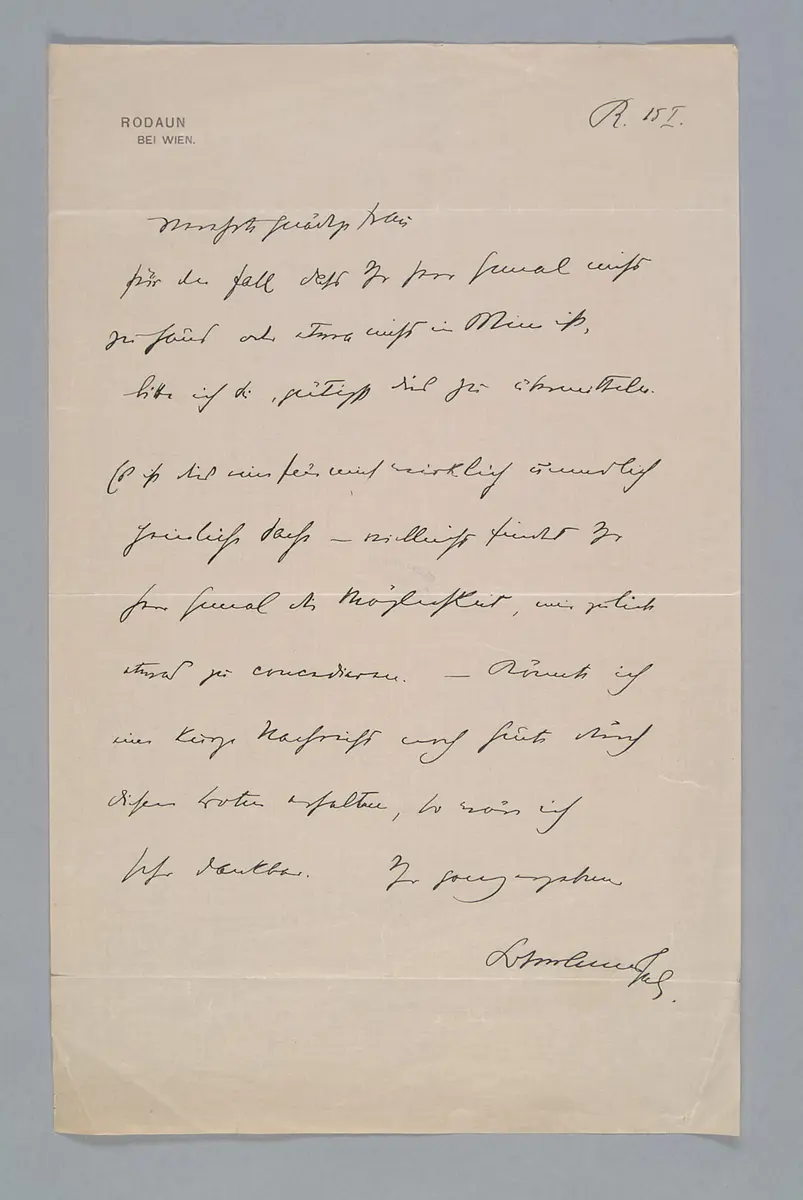 RODAUN
BEI WIEN.
R. 15 I.
Verehrte gnädige Frau
für den Fall dass Ihr Herr Gemal nicht
zuhaus oder etwa nicht in Wien ist,
bitte ich Sie, gütigst dies zu übermitteln.
Es ist dies eine für mich wirklich unendlich
Sache – vielleicht findet Ihr
Herr Gemal die Möglichkeit, mir
etwas zu concedieren. – Könnte ich
eine kurze Nachricht noch heute durch
diesen Boten erhalten, so wäre ich
sehr dankbar. Ihr ganz ergebener
Hofmannsthal.